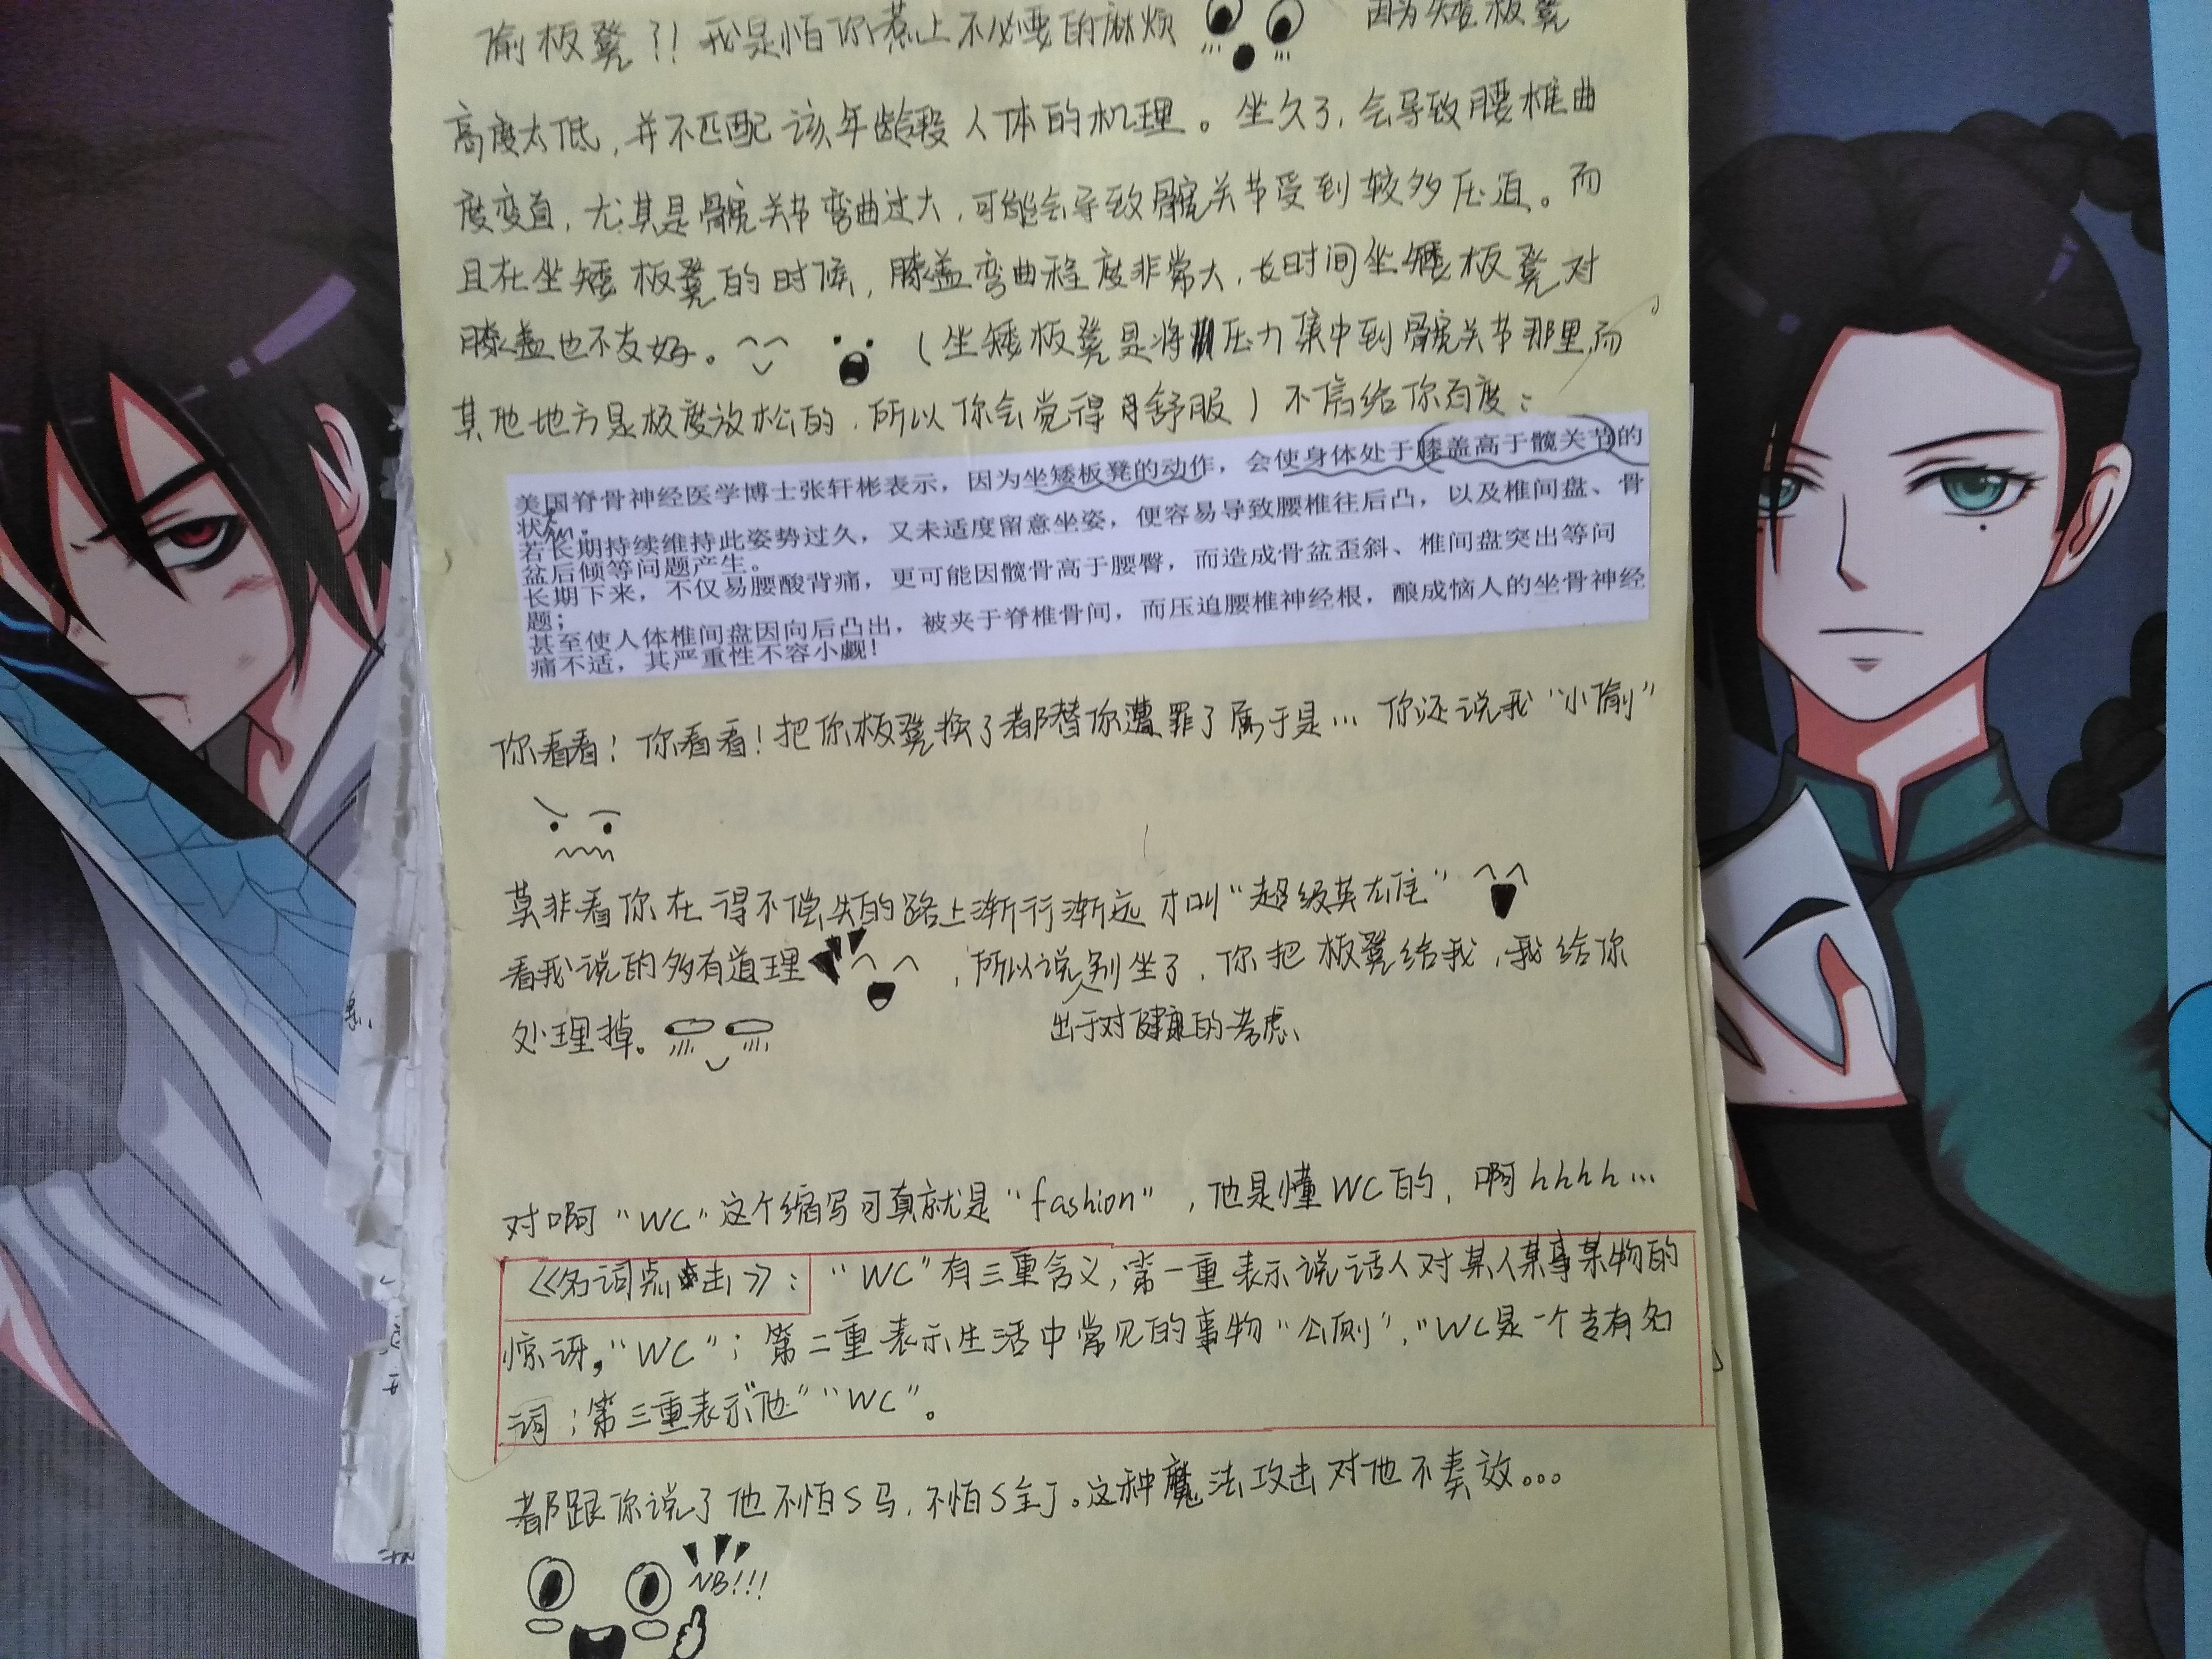 偷板凳?!我是怕你惹上不必要的麻烦 因为矮板凳
高度太低,并不匹配该年龄段人体的机理。坐久了,会导致腰椎曲
度变直,尤其是髋关节弯曲过大,可能会导致髋关节受到较多压迫。而
且在坐矮板凳的时候,膝盖弯曲程度非常大,长时间坐矮板凳对
膝盖也不友好。(坐矮板凳是将压力集中到髋关节那里,而
其他地方是极度放松的,所以你会觉得舒服)不信给你百度:
美国脊骨神经医学博士张轩彬表示,因为坐矮板凳的动作,会使身体处于膝盖高于髋关节的
状态。
若长期持续维持此姿势过久,又未适度留意坐姿,便容易导致腰椎往后凸,以及椎间盘、骨
盆后倾等问题产生。
长期下来,不仅易腰酸背痛,更可能因髋骨高于腰臀,而造成骨盆歪斜、椎间盘突出等问
题;
甚至使人体椎间盘因向后凸出,被夹于脊椎骨间,而压迫腰椎神经根,酿成恼人的坐骨神经
痛不适,其严重性不容小觑!
你看看!你看看!把你板凳换了都替你遭罪了属于是… 你还说我“小偷”
莫非看你在得不偿失的路上渐行渐远才叫“超级英雄”
看我说的多有道理,所以说别坐了,你把板凳给我,我给你
出于对健康的考虑、
处理掉。
对啊“WC”这个缩写可真就是“fashion”,他是懂WC的,啊hhhh…
《名词点击》:“WC”有三重含义,第一重表示说话人对某人某事某物的
惊讶,“WC”;第二重表示生活中常见的事物“公厕”,“WC是一个专有名
词;第三重表示“他”“WC”。
都跟你说了他不怕S马,不怕S全J。这种魔法攻击对他不奏效...
NB!!!